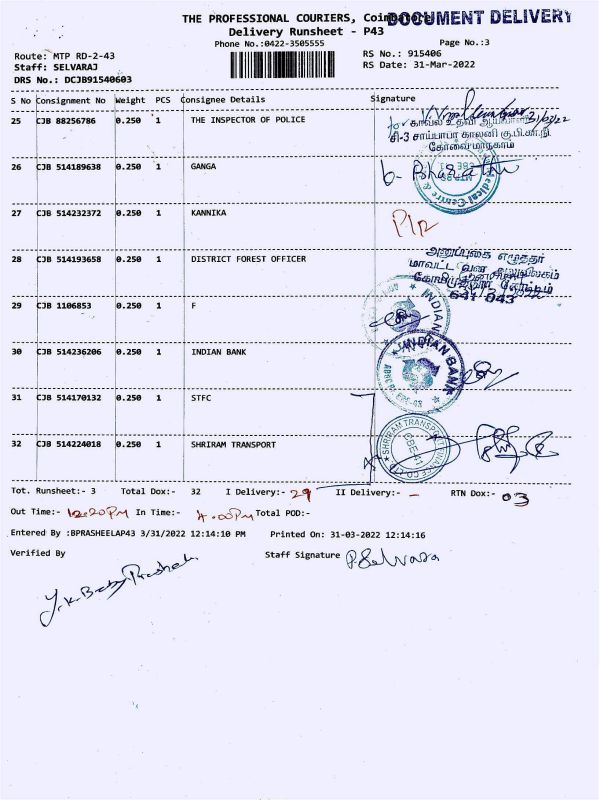 THE PROFESSIONAL COURIERS, Coimbatore
DOCUMENT DELIVERY
Delivery Runsheet - P43
Phone No.:0422-3505555
Page No.:3
Route: MTP RD-2-43
RS No.: 915406
Staff: SELVARAJ
RS Date: 31-Mar-2022
DRS No.: DCJB91540603
S No Consignment No Weight PCS Consignee Details Signature
25 CJB 88256786 0.250 1 THE INSPECTOR OF POLICE
for காவல் உதவி ஆய்வாளர் 31/03/22
சி-3 சாய்பாபா காலனி கு.பி.கா.நி
கோவை மாநகரம்
26 CJB 514189638 0.250 1 GANGA
Medical Centre &
27 CJB 514232372 0.250 1 KANNIKA
28 CJB 514193658 0.250 1 DISTRICT FOREST OFFICER
அனுப்புகை எழுத்தர்
மாவட்ட வன அலுவலகம்
641 043
29 CJB 1106853 0.250 1 F
INDIAN
30 CJB 514236206 0.250 1 INDIAN BANK
INDIAN BANK
31 CJB 514170132 0.250 1 STFC
32 CJB 514224018 0.250 1 SHRIRAM TRANSPORT
SHRIRAM TRANSPORT FINANCE CO LTD
CBE-41
Tot. Runsheet:- 3 Total Dox:- 32 I Delivery:- 29 II Delivery:- – RTN Dox:- 03
Out Time:- 12.20PM In Time:- 4.00PM Total POD:-
Entered By :BPRASHEELAP43 3/31/2022 12:14:10 PM Printed On: 31-03-2022 12:14:16
Verified By Staff Signature